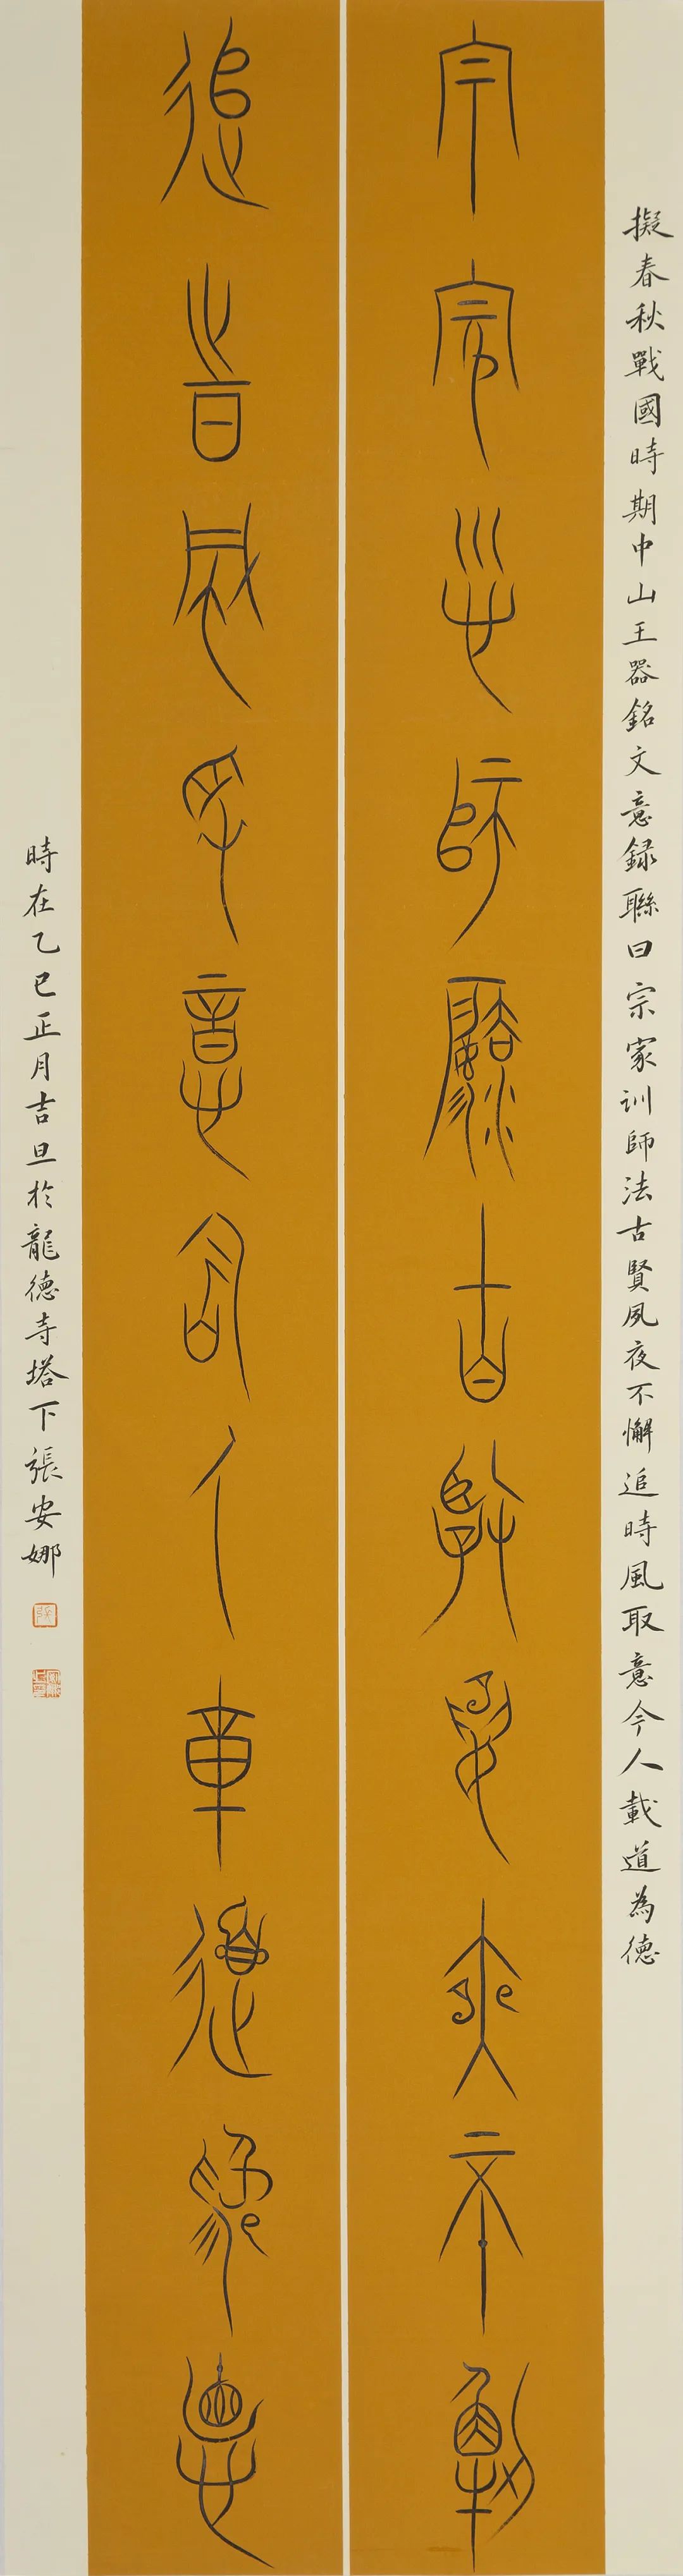 擬春秋戰國時期中山王器銘文意録聯曰宗家训師法古賢夙夜不懈追時風取意今人載道為德
宗家訓師法古賢夙夜不懈
追時風取意今人載道為德
時在乙巳正月吉旦於龍德寺塔下張安娜